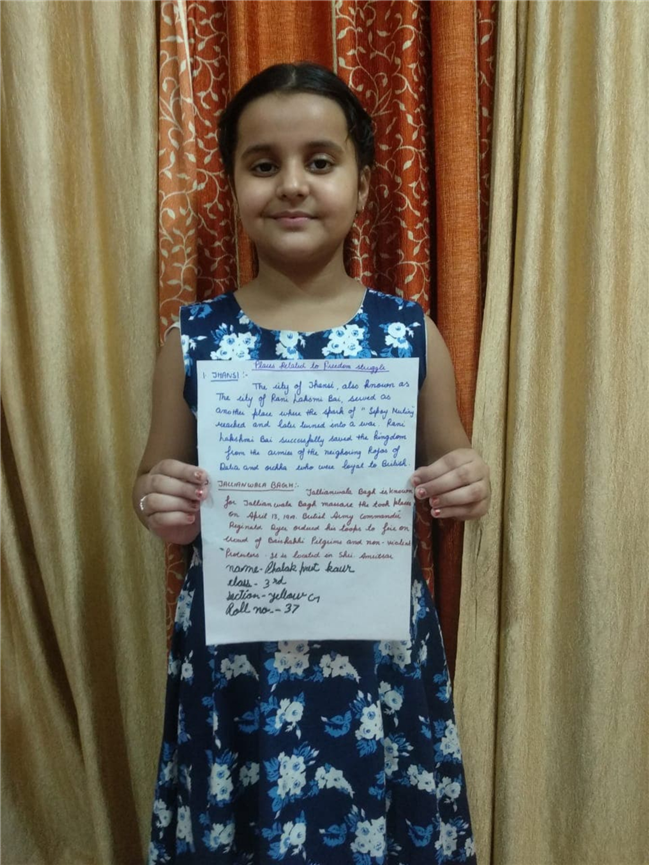 Places Related to Freedom struggle
1. JHANSI :-
The city of Jhansi, also known as
The city of Rani Laksmi Bai, served as
another place where the spark of "Sepoy Mutiny
reached and later turned into a war. Rani
Lakshmi Bai successfully saved the kingdom
from the armies of the neighoring Rajas of
and who were loyal to British.
JALLIANWALA BAGH:- Jallianwala Bagh is known
for Jallianwala Bagh massacre the took place
on April 13, British Army Commander
Reginald Dyer ordered his troops to fire on
crowd of Baishakhi Pilgrims and non-violent
Protesters. It is located in Shri Amritsar
name- Phalak preet kaur
class- 3rd
section- yellow
Roll no.- 37